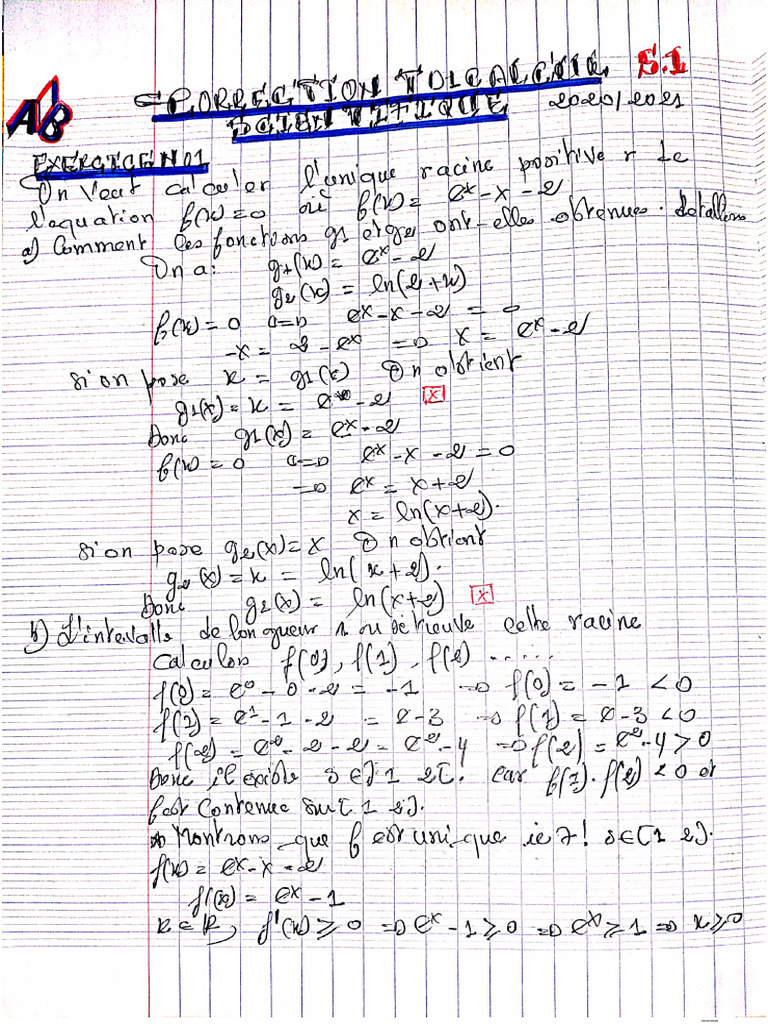 CORRECTION TD1 CALCUL S.1
SCIENTIFIQUE 2020/2021
AB
EXERCICE N01
On veut calculer l'unique racine positive r de
l'equation f(x)=0 où f(x)= e^x - x - 2
a) Comment les fonctions g1 et ge2 ont-elles obtenues. detaillons
On a: g1(x) = e^x - 2
g2(x) = ln(2+x)
f(x) = 0 <=> e^x - x - 2 = 0
-x = 2 - e^x => x = e^x - 2
si on pose x = g1(x) On obtient
g1(x) = x = e^x - 2 x
Donc g1(x) = e^x - 2
f(x) = 0 <=> e^x - x - 2 = 0
=> e^x = x+2
x = ln(x+2).
si on pose g2(x) = x On obtient
g2(x) = x = ln(x+2).
Donc g2(x) = ln(x+2) x
b) L'intervalle de longueur 1 ou se trouve cette racine
calculos f(0), f(1), f(2) .....
f(0) = e^0 - 0 - 2 = -1 => f(0) = -1 < 0
f(1) = e^1 - 1 - 2 = e - 3 => f(1) = e - 3 < 0
f(2) = e^2 - 2 - 2 = e^2 - 4 => f(2) = e^2 - 4 > 0
Donc il existe s ∈ ]1 2[. car f(1). f(2) < 0 et
f est contenue sur [1 2].
* Montrons que f est unique ie ∃! s ∈ [1 2].
f(x) = e^x - x - 2
f'(x) = e^x - 1
x ∈ R, f'(x) ⩾ 0 => e^x - 1 ⩾ 0 => e^x ⩾ 1 => x ⩾ 0